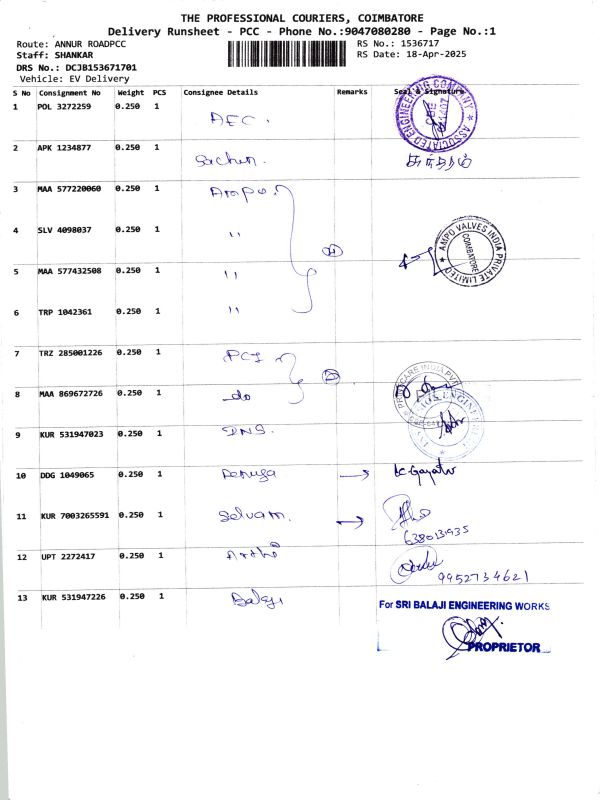 THE PROFESSIONAL COURIERS, COIMBATORE
Delivery Runsheet - PCC - Phone No.:9047080280 - Page No.:1
Route: ANNUR ROADPCC
RS No.: 1536717
Staff: SHANKAR
RS Date: 18-Apr-2025
DRS No.: DCJB153671701
Vehicle: EV Delivery
S No Consignment No Weight PCS Consignee Details Remarks Seal & Signature
1 POL 3272259 0.250 1 AEC.
ASSOCIATED ENGINEERING COMPANY
2 APK 1234877 0.250 1 Sachin.
3 MAA 577220060 0.250 1 Ampo.
4 SLV 4098037 0.250 1 "
AMPO VALVES INDIA PRIVATE LIMITED
COIMBATORE
5 MAA 577432508 0.250 1 "
6 TRP 1042361 0.250 1 "
7 TRZ 285001226 0.250 1 PCI
8 MAA 869672726 0.250 1 do
9 KUR 531947023 0.250 1
10 DDG 1049065 0.250 1 Renuga
11 KUR 7003265591 0.250 1 Selvam.
6380131935
12 UPT 2272417 0.250 1
9952734621
13 KUR 531947226 0.250 1 Balaji
For SRI BALAJI ENGINEERING WORKS
PROPRIETOR